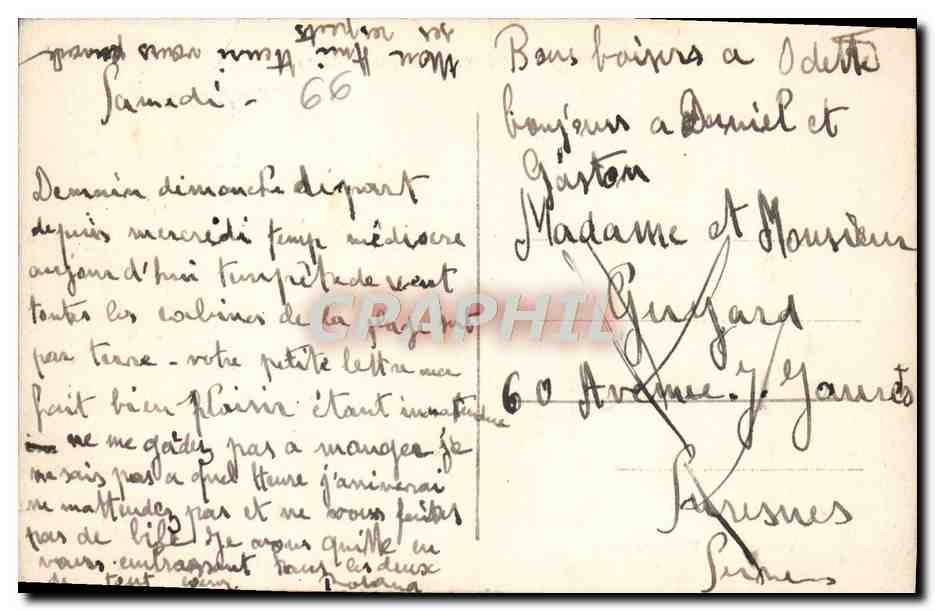 Mon Ami Henri vous envoie
ses respects
Samedi - 66
Demain dimanche départ
depuis mercredi temp médiocre
aujour d'hui tempête de vent
toutes les cabines de la plage sont
par terre - votre petite lettre ma
fait bien plaisir étant inattendue
ne me gardez pas a manger je
ne sais pas a quel Heure j'ariverai
ne mattendez pas et ne vous faites
pas de bile Je vous quitte en
vous embrassant tous les deux
de tout coeur Roland
Bons baisers a Odette
bonjours a Daniel et
Gaston
Madame et Monsieur
Guyard
60 Avenue J. Jaurès
Suresnes
Seine
CRAPHIL